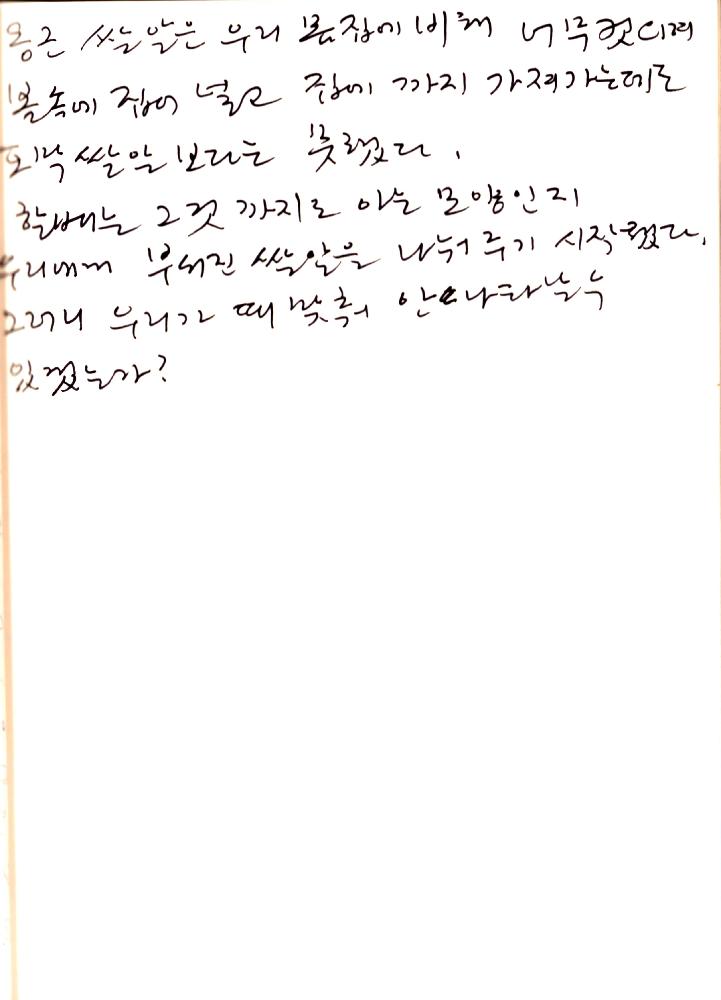 옹근 쌀알은 우리 몸집에 비해 너무 컷디며
볼속에 집어 널고 집에 까지 가져가는데도
토막 쌀알 보다는 못했었다.
할버는 그것 까지도 아는 모양인지
우리에게 부서진 쌀알을 나눠주기 시작했었다.
그러니 우리가 때 맞춰 안 나타날수
있겠는가?